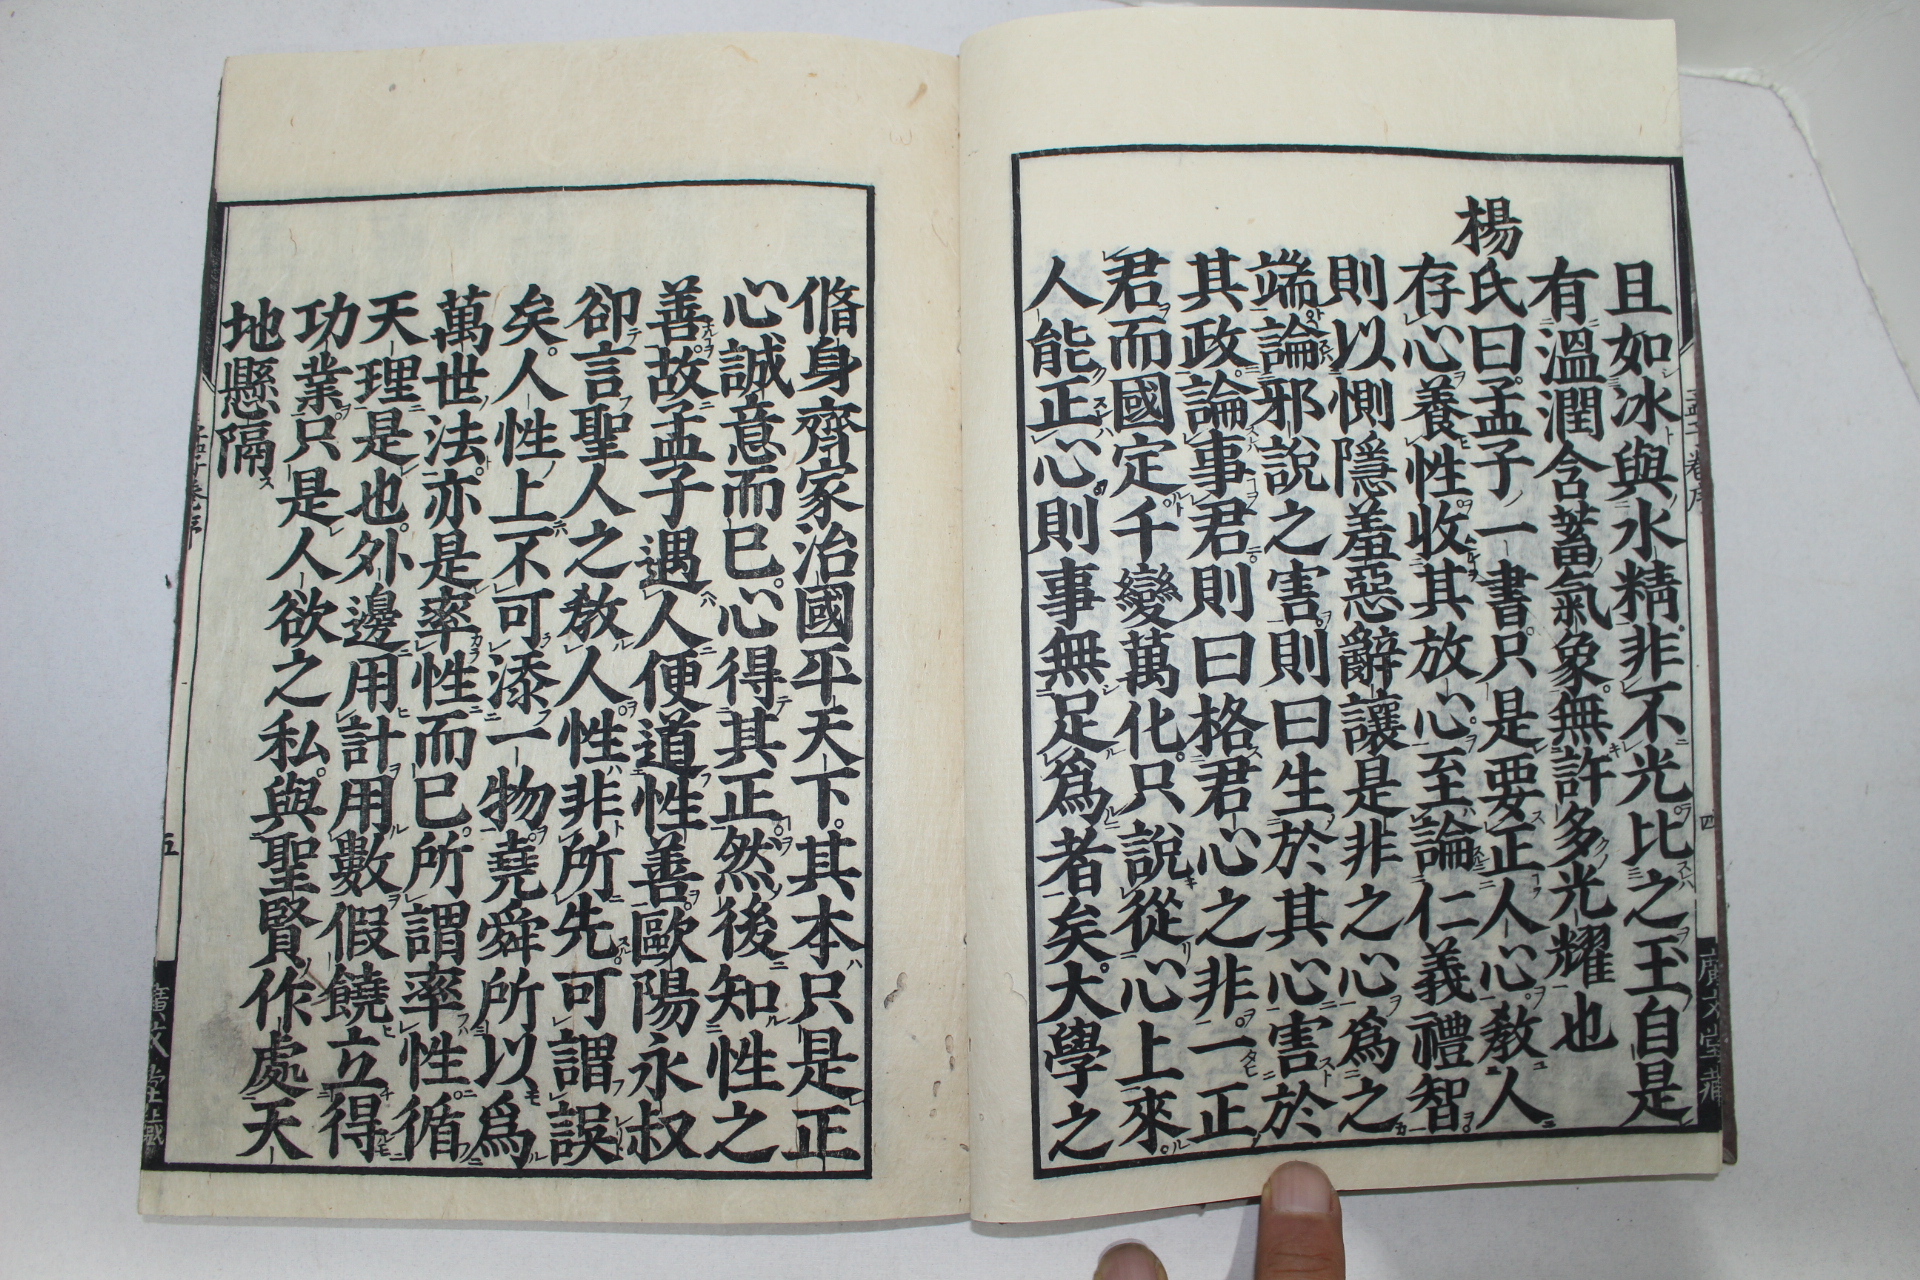 且如冰與水精非不光比之玉自是
有溫潤含蓄氣象無許多光耀也
楊氏曰孟子一書只是要正人心教人
存心養性收其放心至論仁義禮智
則以惻隱羞惡辭讓是非之心為之
端論邪說之害則曰生於其心害於
其政論事君則曰格君心之非一正
君而國定千變萬化只說從心上來
人能正心則事無足爲者矣大學之
脩身齊家治國平天下其本只是正
心誠意而已心得其正然後知性之
善故孟子遇人便道性善歐陽永叔
卻言聖人之教人性非所先可謂誤
矣人性上不可添一物堯舜所以爲
萬世法亦是率性而已所謂率性循
天理是也外邊用計用數假饒立得
功業只是人欲之私與聖賢作處天
地懸隔